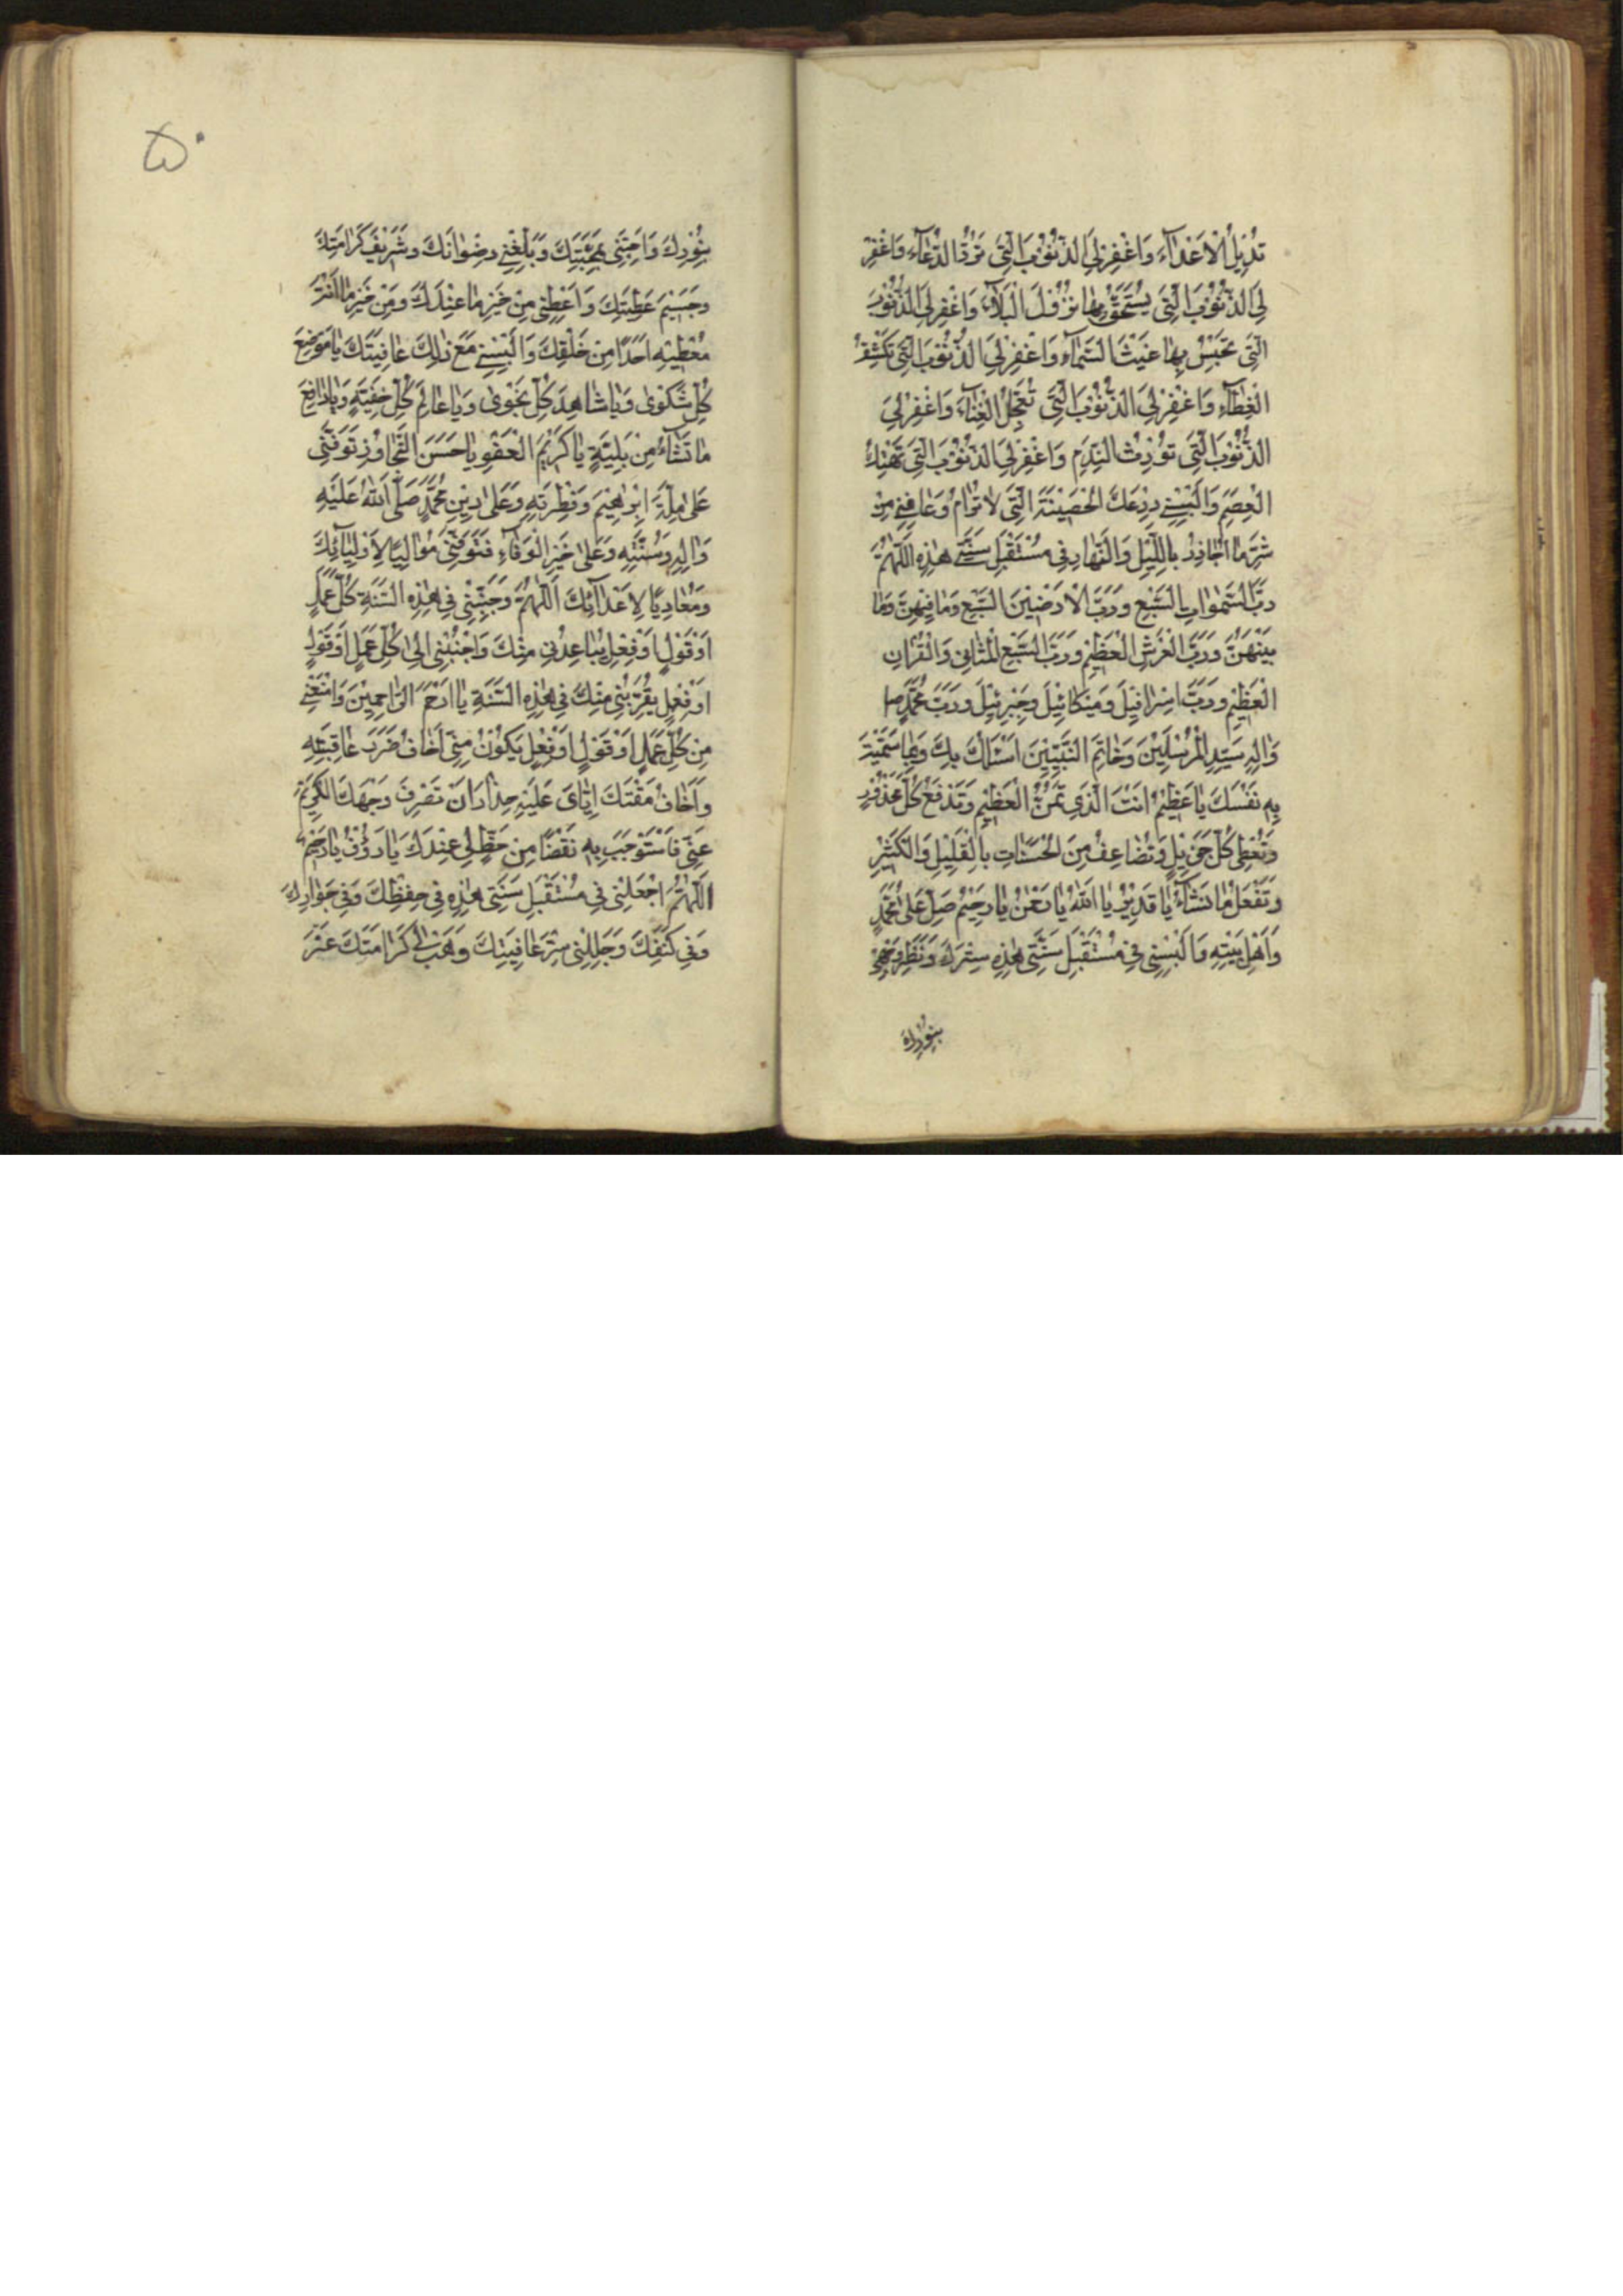 تُدِيلُ الْاَعْدٰاۤءَ وَاغْفِرْ لِيَ الذُّنُوْبَ الَّتِيْ تَرُدُّ الدُّعٰاۤءَ وَاغْفِرْ
لِيَ الذُّنُوْبَ الَّتِيْ يُسْتَحَقُّ بِهٰا نُزُوْلُ الْبَلٰاۤءِ وَاغْفِرْ لِيَ الذُّنُوْبَ
الَّتِيْ تَحْبِسُ بِهٰا غَيْثَ السَّمٰاۤءِ وَاغْفِرْ لِيَ الذُّنُوْبَ الَّتِيْ تَكْشِفُ
الْغِطٰاۤءَ وَاغْفِرْ لِيَ الذُّنُوْبَ الَّتِيْ تُعَجِّلُ الْفَنٰاۤءَ وَاغْفِرْ لِيَ
الذُّنُوْبَ الَّتِيْ تُوْرِثُ النَّدَمَ وَاغْفِرْ لِيَ الذُّنُوْبَ الَّتِيْ تَهْتِكُ
الْعِصَمَ وَاَلْبِسْنِيْ دِرْعَكَ الْحَصِيْنَةَ الَّتِيْ لٰا تُرٰامُ وَعٰافِنِيْ مِنْ
شَرِّ مٰا اُحٰاذِرُ بِاللَّيْلِ وَالنَّهٰارِ فِيْ مُسْتَقْبَلِ سَنَتِيْ هٰذِهِ اَللّٰهُمَّ
رَبَّ السَّمٰوٰاتِ السَّبْعِ وَرَبَّ الْاَرَضِيْنَ السَّبْعِ وَمٰا فِيْهِنَّ وَمٰا
بَيْنَهُنَّ وَرَبَّ الْعَرْشِ الْعَظِيْمِ وَرَبَّ السَّبْعِ الْمَثٰانِيْ وَالْقُرْاٰنِ
الْعَظِيْمِ وَرَبَّ اِسْرٰافِيْلَ وَمِيْكٰائِيْلَ وَجَبْرَئِيْلَ وَرَبَّ مُحَمَّدٍ ص
وَاٰلِهِ سَيِّدِ الْمُرْسَلِيْنَ وَخٰاتَمِ النَّبِيِّيْنَ اَسْئَلُكَ بِكَ وَبِمٰا سَمَّيْتَ
بِهِ نَفْسَكَ يٰا عَظِيْمُ اَنْتَ الَّذِيْ تَمُنُّ الْعَظِيْمَ وَتَدْفَعُ كُلَّ مَحْذُوْرٍ
وَتُعْطِيْ كُلَّ جَزِيْلٍ وَتُضٰاعِفُ مِنَ الْحَسَنٰاتِ بِالْقَلِيْلِ وَالْكَثِيْرِ
وَتَفْعَلُ مٰا تَشٰاۤءُ يٰا قَدِيْرُ يٰا اَللّٰهُ يٰا رَحْمٰنُ يٰا رَحِيْمُ صَلِّ عَلٰى مُحَمَّدٍ
وَاَهْلِ بَيْتِهِ وَاَلْبِسْنِيْ فِيْ مُسْتَقْبَلِ سَنَتِيْ هٰذِهِ سِتْرَكَ وَنَضِّرْ وَجْهِيْ
بِنُوْرِكَ
۵۰
بِنُوْرِكَ وَاَحِبَّنِيْ بِمَحَبَّتِكَ وَبَلِّغْنِيْ رِضْوٰانَكَ وَشَرِيْفَ كَرٰامَتِكَ
وَجَسِيْمَ عَطِيَّتِكَ وَاَعْطِنِيْ مِنْ خَيْرِ مٰا عِنْدَكَ وَمِنْ خَيْرِ مٰا اَنْتَ
مُعْطِيْهِ اَحَدًا مِنْ خَلْقِكَ وَاَلْبِسْنِيْ مَعَ ذٰلِكَ عٰافِيَتَكَ يٰا مَوْضِعَ
كُلِّ شَكْوٰى وَيٰا شٰاهِدَ كُلِّ نَجْوٰى وَيٰا عٰالِمَ كُلِّ خَفِيَّةٍ وَيٰا دٰافِعَ
مٰا تَشٰاۤءُ مِنْ بَلِيَّةٍ يٰا كَرِيْمَ الْعَفْوِ يٰا حَسَنَ التَّجٰاوُزِ تَوَفَّنِيْ
عَلٰى مِلَّةِ اِبْرٰاهِيْمَ وَفِطْرَتِهِ وَعَلٰى دِيْنِ مُحَمَّدٍ صَلَّى اللّٰهُ عَلَيْهِ
وَاٰلِهِ وَسُنَّتِهِ وَعَلٰى خَيْرِ الْوَفٰاةِ فَتَوَفَّنِيْ مُوٰالِيًا لِاَوْلِيٰاۤئِكَ
وَمُعٰادِيًا لِاَعْدٰاۤئِكَ اَللّٰهُمَّ وَجَنِّبْنِيْ فِيْ هٰذِهِ السَّنَةِ كُلَّ عَمَلٍ
اَوْ قَوْلٍ اَوْ فِعْلٍ يُبٰاعِدُنِيْ مِنْكَ وَاجْلُبْنِيْ اِلٰى كُلِّ عَمَلٍ اَوْ قَوْلٍ
اَوْ فِعْلٍ يُقَرِّبُنِيْ مِنْكَ فِيْ هٰذِهِ السَّنَةِ يٰا اَرْحَمَ الرّٰاحِمِيْنَ وَامْنَعْنِيْ
مِنْ كُلِّ عَمَلٍ اَوْ قَوْلٍ اَوْ فِعْلٍ يَكُوْنُ مِنِّيْ اَخٰافُ ضَرَرَ عٰاقِبَتِهِ
وَاَخٰافُ مَقْتَكَ اِيّٰايَ عَلَيْهِ حِذٰارَ اَنْ تَصْرِفَ وَجْهَكَ الْكَرِيْمَ
عَنِّيْ فَاَسْتَوْجِبَ بِهِ نَقْصًا مِنْ حَظٍّ لِيْ عِنْدَكَ يٰا رَؤُفُ يٰا رَحِيْمُ
اَللّٰهُمَّ اجْعَلْنِيْ فِيْ مُسْتَقْبَلِ سَنَتِيْ هٰذِهِ فِيْ حِفْظِكَ وَفِيْ جِوٰارِكَ
وَفِيْ كَنَفِكَ وَجَلِّلْنِيْ سِتْرَ عٰافِيَتِكَ وَهَبْ لِيْ كَرٰامَتَكَ عَزَّ